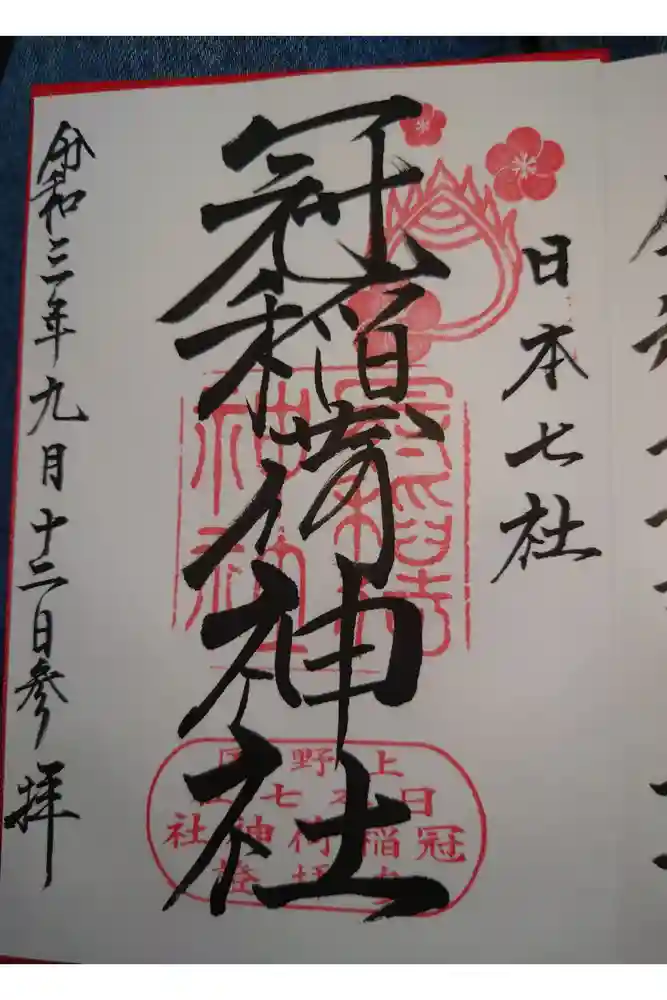 日本七社
冠稲荷神社
令和三年九月十二日参拝
冠稲荷
神社
上野國
日本七社
冠稲荷神社